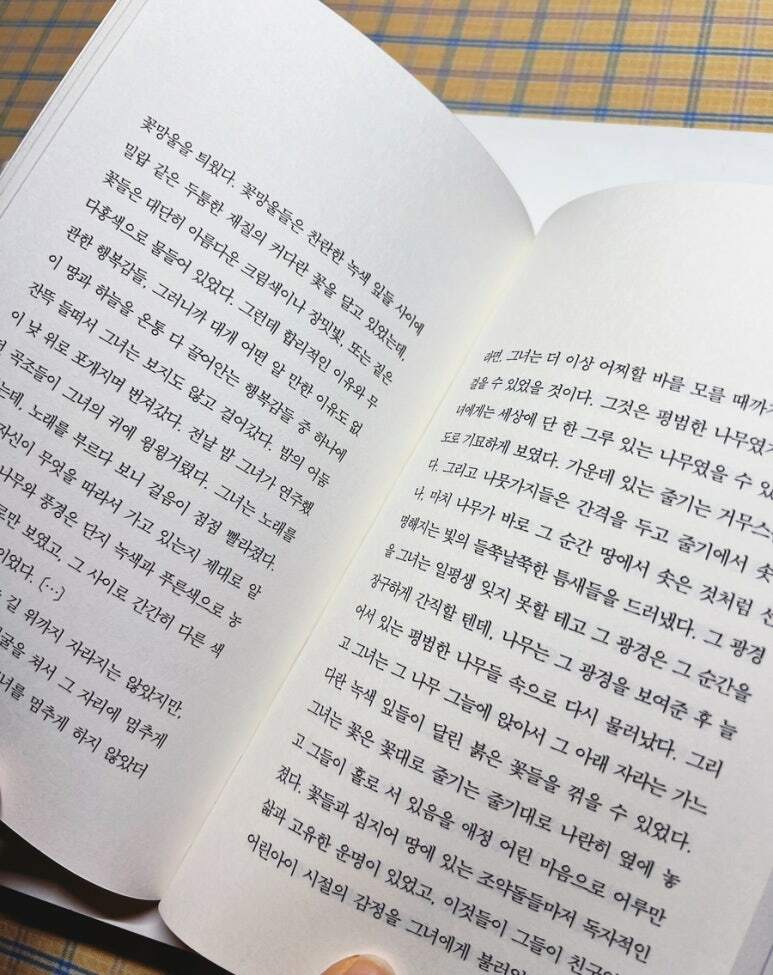 꽃망울을 틔웠다. 꽃망울들은 찬란한 녹색 잎들 사이에
밀랍 같은 두툼한 재질의 커다란 꽃을 달고 있었는데,
꽃들은 대단히 아름다운 크림색이나 장밋빛, 또는 짙은
다홍색으로 물들어 있었다. 그런데 합리적인 이유와 무
관한 행복감들, 그러니까 대개 어떤 알 만한 이유도 없
이 땅과 하늘을 온통 다 끌어안는 행복감들 중 하나에
잔뜩 들떠서 그녀는 보지도 않고 걸어갔다. 밤의 어둠
이 낮 위로 포개지며 번져갔다. 전날 밤 그녀가 연주했
곡조들이 그녀의 귀에 윙윙거렸다. 그녀는 노래를
는데, 노래를 부르다 보니 걸음이 점점 빨라졌다.
자신이 무엇을 따라서 가고 있는지 제대로 알
나무와 풍경은 단지 녹색과 푸른색으로 놓
로만 보였고, 그 사이로 간간히 다른 색
이었다. (··)
길 위까지 자라지는 않았지만,
굴을 쳐서 그 자리에 멈추게
녀를 멈추게 하지 않았더
라면, 그녀는 더 이상 어찌할 바를 모를 때까지
걸을 수 있었을 것이다. 그것은 평범한 나무였
녀에게는 세상에 단 한 그루 있는 나무였을 수 있
도로 기묘하게 보였다. 가운데 있는 줄기는 거무스
다. 그리고 나뭇가지들은 간격을 두고 줄기에서 솟
나, 마치 나무가 바로 그 순간 땅에서 솟은 것처럼 선
명해지는 빛의 들쭉날쭉한 틈새들을 드러냈다. 그 광경
을 그녀는 일평생 잊지 못할 테고 그 광경은 그 순간을
장구하게 간직할 텐데, 나무는 그 광경을 보여준 후 늘
어서 있는 평범한 나무들 속으로 다시 물러났다. 그리
고 그녀는 그 나무 그늘에 앉아서 그 아래 자라는 가느
다란 녹색 잎들이 달린 붉은 꽃들을 꺾을 수 있었다.
그녀는 꽃은 꽃대로 줄기는 줄기대로 나란히 옆에 놓
고 그들이 홀로 서 있음을 애정 어린 마음으로 어루만
졌다. 꽃들과 심지어 땅에 있는 조약돌들마저 독자적인
삶과 고유한 운명이 있었고, 이것들이 그들이 친구
어린아이 시절의 감정을 그녀에게 불러